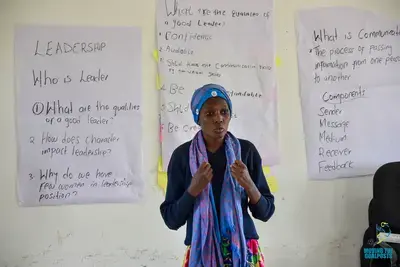 LEADERSHIP
Who is Leader
① What are the qualities
of a good leader?
2 How does character
impact leadership?
3 Why do we have
few women in leadership
position?
a good leader?
Confidence
Audible
Be
Be
What is Communica
The process of passing
information from one person
to another
Components
Sender
Message
Medium
Receiver
Feedback
MOVING THE
GOALPOSTS